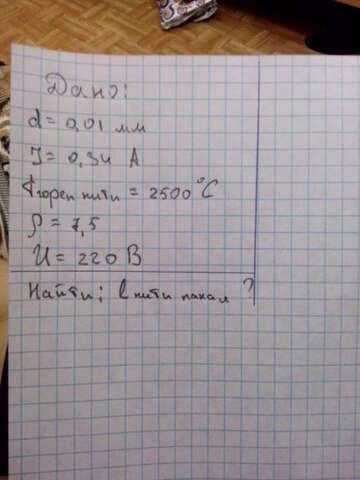 Дано:
d = 0,01 мм
J = 0,34 А
t горен нити = 2500°C
ρ = 7,5
U = 220 В
Найти: l нити накал ?